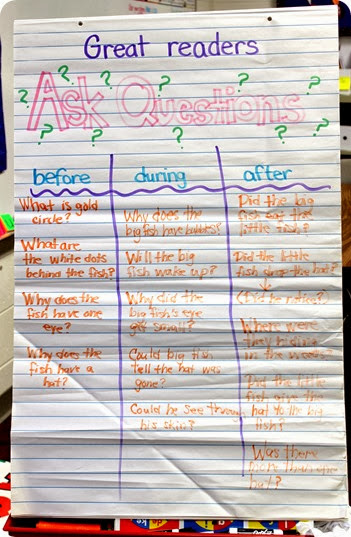 Great readers
? ? ? ? ? ? ? ? ? ?
Ask Questions
before
What is gold
circle?
What are
the white dots
behind the fish?
Why does the
fish have one
eye?
Why does the
fish have a
hat?
during
Why does the
big fish have bubbles?
Will the big
fish wake up?
Why did the
big fish's eye
get small?
Could big fish
tell the hat was
gone?
Could he see through
his skin?
after
Did the big
fish eat the
little fish?
Did the little
fish drop the hat?
(Did he notice?)
Where were
they hiding
in the weeds?
Did the little
fish give the
hat to the big
fish?
Was there
more than one
hat?